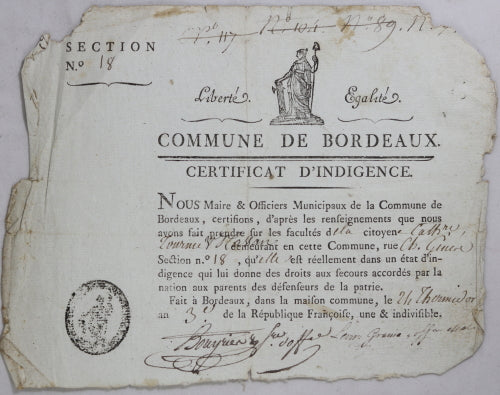 Nº 117 Nº 101 Nº 89. N.
SECTION
N.º 18
Liberté. Egalité.
COMMUNE DE BORDEAUX.
CERTIFICAT D'INDIGENCE.
NOUS Maire & Officiers Municipaux de la Commune de
Bordeaux, certifions, d'après les renseignemens que nous
avons fait prendre sur les facultés de la citoyene Cathne
demeurant en cette Commune, rue
Section n.º 18, qu'elle est réellement dans un état d'in-
digence qui lui donne des droits aux secours accordés par la
nation aux parents des défenseurs de la patrie.
Fait à Bordeaux, dans la maison commune, le 24 Thermidor
an 3e de la République Françoise, une & indivisible.